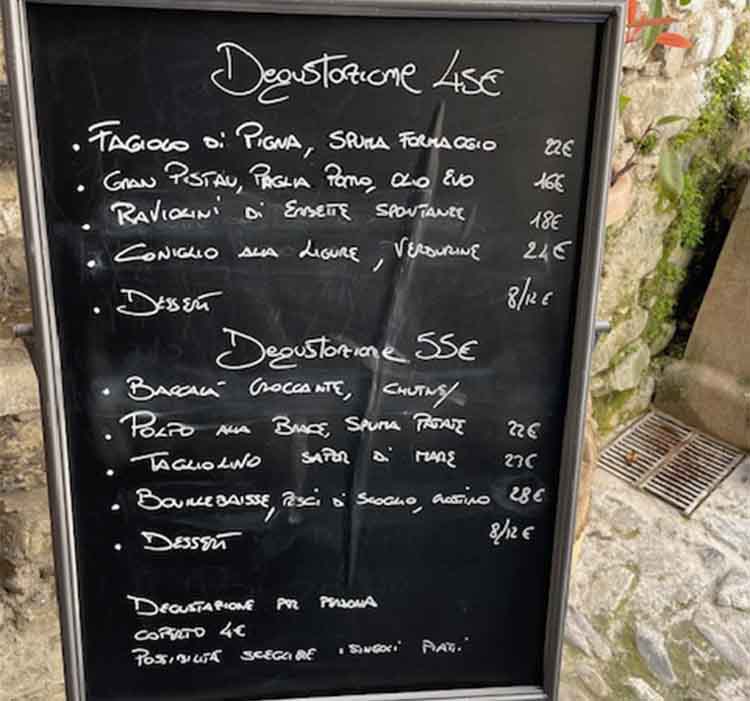 Degustazione 45€
• Fagiolo di Pigna, Spuma Formaggio 22€
• Gran Pistau, Paglia Porro, Olio Evo 16€
• Raviolini di Erbette Spontanee 18€
• Coniglio alla Ligure, Verdurine 24€
• Dessert 8/12€
Degustazione 55€
• Baccalà Croccante, Chutney
• Polpo alla Brace, Spuma Patate 22€
• Tagliolino Sapor di Mare 23€
• Bouillebaisse, Pesci di Scoglio, Crostino 28€
• Dessert 8/12€
Degustazione per Persona
Coperto 4€
Possibilità Scegliere i Singoli Piatti